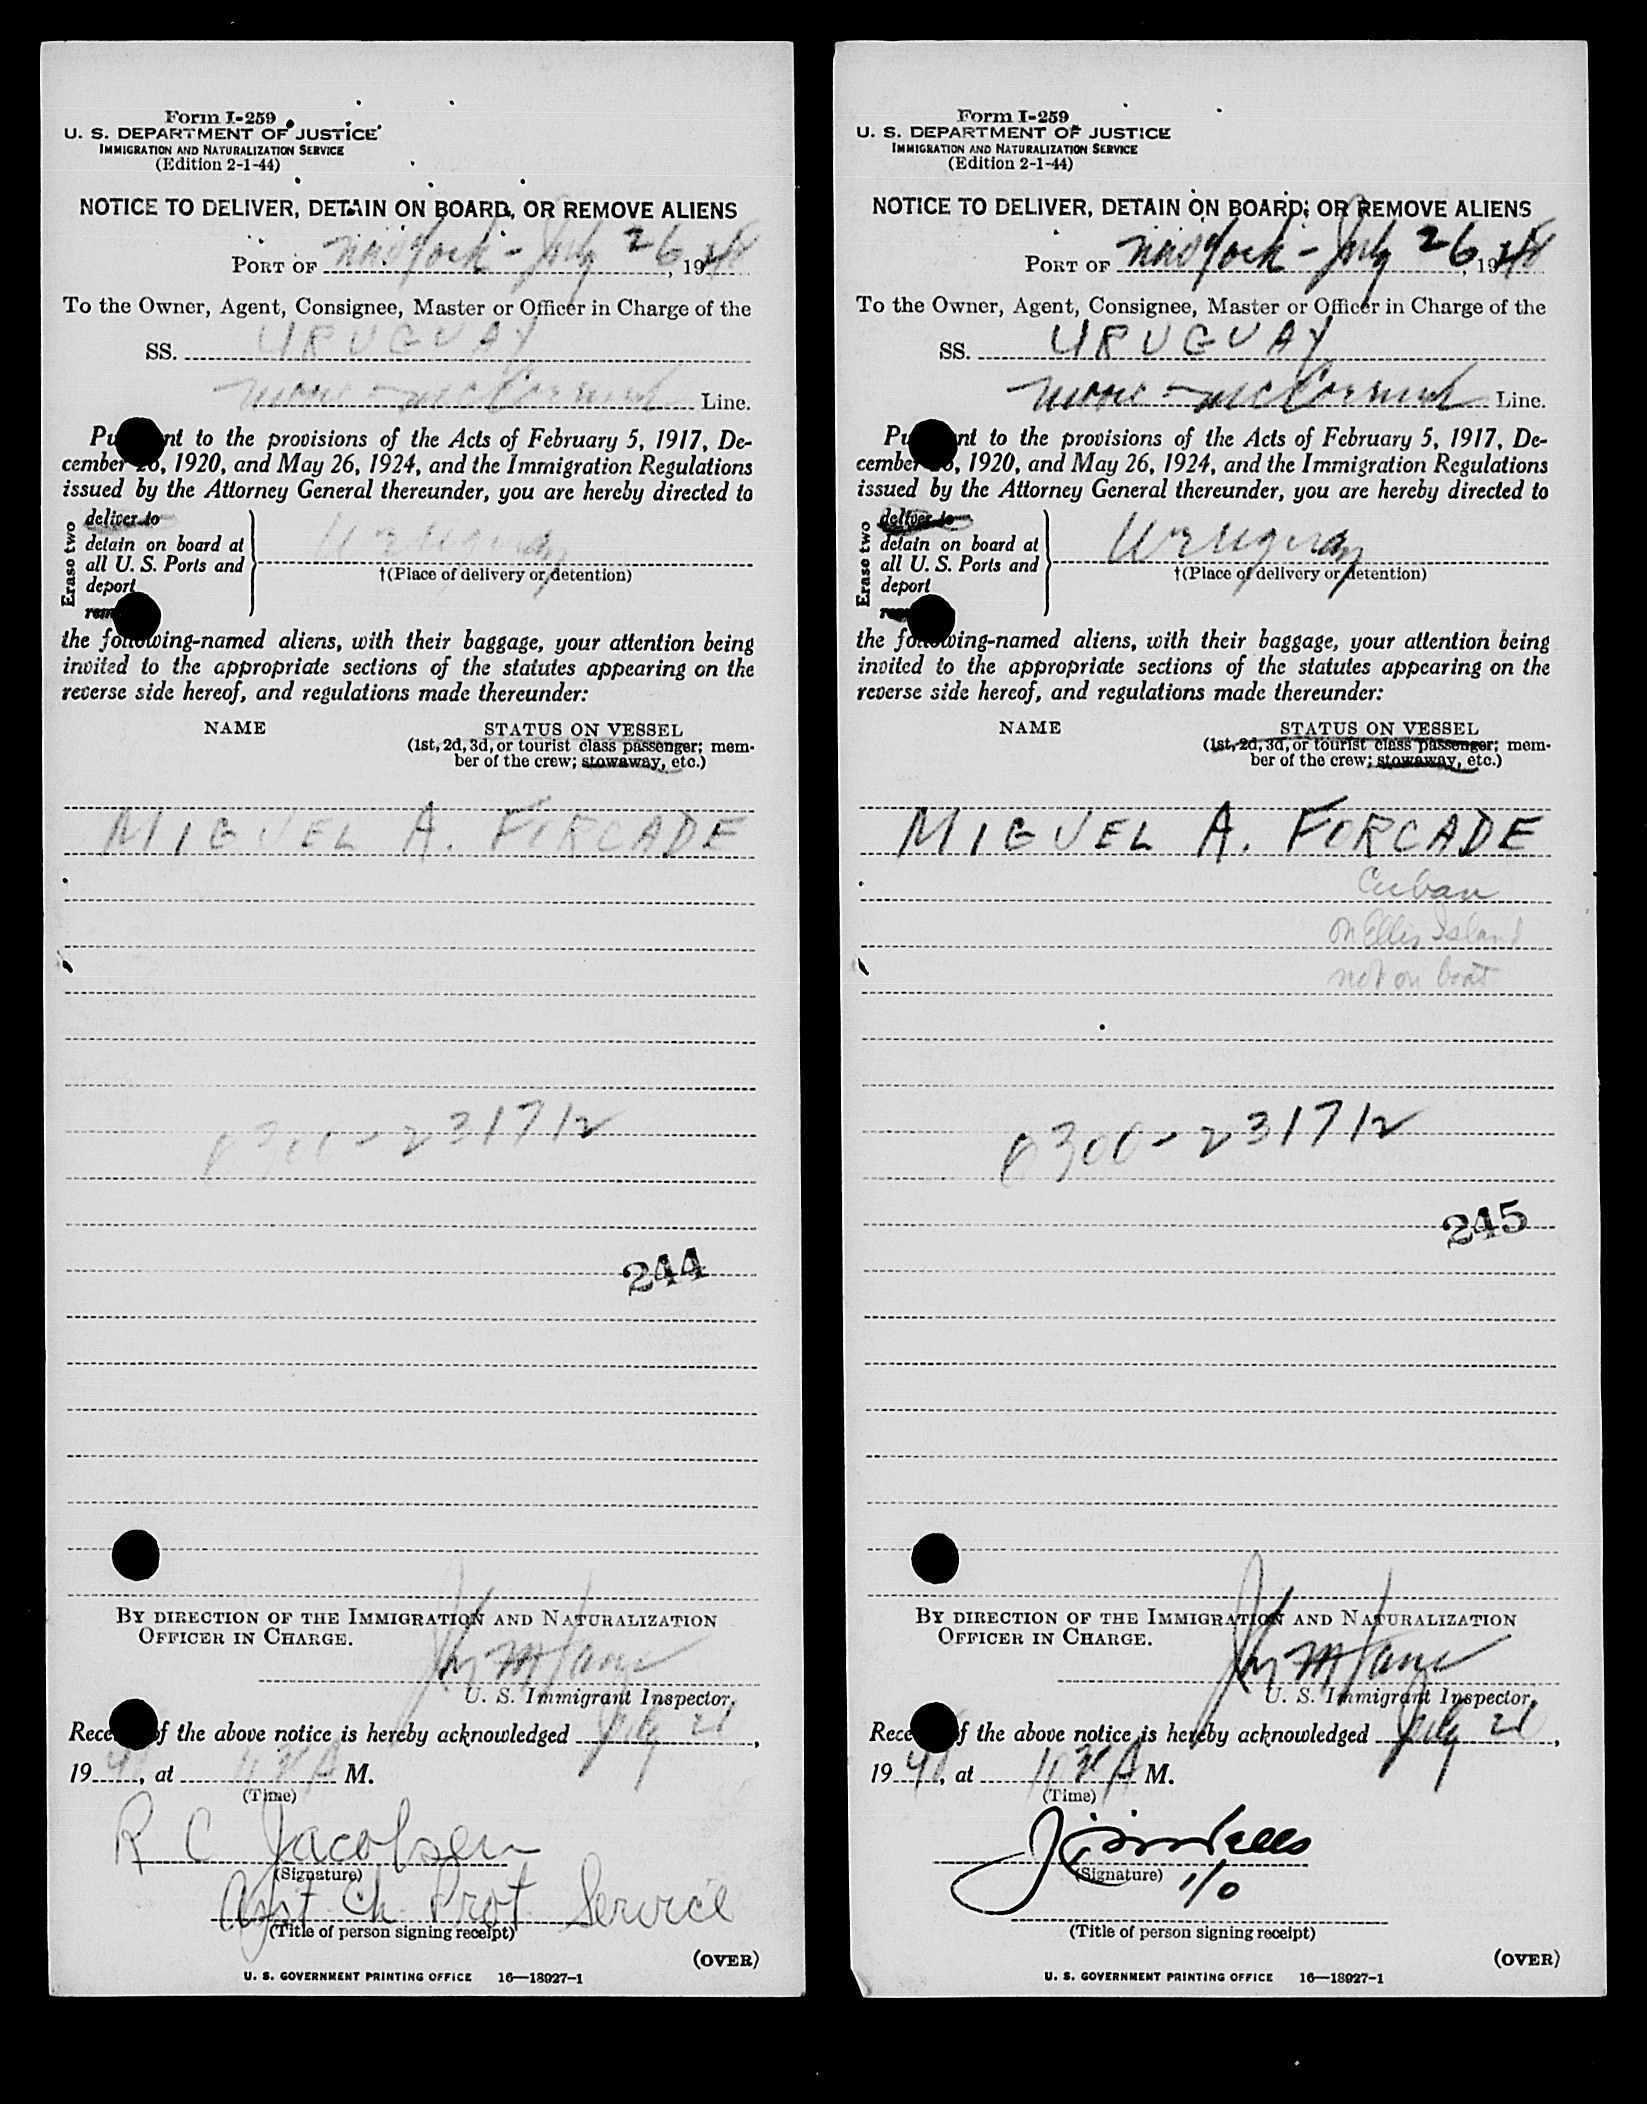 Form I-259
U. S. DEPARTMENT OF JUSTICE
IMMIGRATION AND NATURALIZATION SERVICE
(Edition 2-1-44)
NOTICE TO DELIVER, DETAIN ON BOARD, OR REMOVE ALIENS
PORT OF New York - July 26, 1948
To the Owner, Agent, Consignee, Master or Officer in Charge of the
SS. URUGUAY
Moore - McCormack Line.
Pu nt to the provisions of the Acts of February 5, 1917, De-
cember 26, 1920, and May 26, 1924, and the Immigration Regulations
issued by the Attorney General thereunder, you are hereby directed to
Erase two
deliver to
detain on board at
all U. S. Ports and
deport
rem
Uruguay
†(Place of delivery or detention)
the following-named aliens, with their baggage, your attention being
invited to the appropriate sections of the statutes appearing on the
reverse side hereof, and regulations made thereunder:
NAME STATUS ON VESSEL
(1st, 2d, 3d, or tourist class passenger; mem-
ber of the crew; stowaway, etc.)
MIGUEL A. FORCADE
0300-231712
244
BY DIRECTION OF THE IMMIGRATION AND NATURALIZATION
OFFICER IN CHARGE.
U. S. Immigrant Inspector.
Rece f the above notice is hereby acknowledged July 26,
1948, at 10 30 A M.
(Time)
R C Jacobsen
(Signature)
Asst. Ch. Prot. Service
(Title of person signing receipt)
(OVER)
U. S. GOVERNMENT PRINTING OFFICE 16—18927-1
Form I-259
U. S. DEPARTMENT OF JUSTICE
IMMIGRATION AND NATURALIZATION SERVICE
(Edition 2-1-44)
NOTICE TO DELIVER, DETAIN ON BOARD, OR REMOVE ALIENS
PORT OF New York - July 26, 1948
To the Owner, Agent, Consignee, Master or Officer in Charge of the
SS. URUGUAY
Moore - McCormack Line.
Pu nt to the provisions of the Acts of February 5, 1917, De-
cember 26, 1920, and May 26, 1924, and the Immigration Regulations
issued by the Attorney General thereunder, you are hereby directed to
Erase two
deliver to
detain on board at
all U. S. Ports and
deport
Uruguay
†(Place of delivery or detention)
the following-named aliens, with their baggage, your attention being
invited to the appropriate sections of the statutes appearing on the
reverse side hereof, and regulations made thereunder:
NAME STATUS ON VESSEL
(1st, 2d, 3d, or tourist class passenger; mem-
ber of the crew; stowaway, etc.)
MIGUEL A. FORCADE
Cuban
on Ellis Island
not on boat
0300-231712
245
BY DIRECTION OF THE IMMIGRATION AND NATURALIZATION
OFFICER IN CHARGE.
U. S. Immigrant Inspector.
Rece f the above notice is hereby acknowledged July 26,
1948, at 10 30 A M.
(Time)
(Signature)
1/0
(Title of person signing receipt)
(OVER)
U. S. GOVERNMENT PRINTING OFFICE 16—18927-1